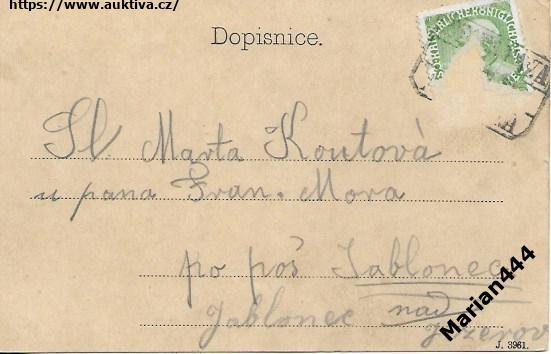 https://www.auktiva.cz/
Dopisnice.
Sl. Marta Koutová
u pana Fran. Mora
po poš Jablonec
Jablonec nad
Jizerou
Marian444
J. 3961.